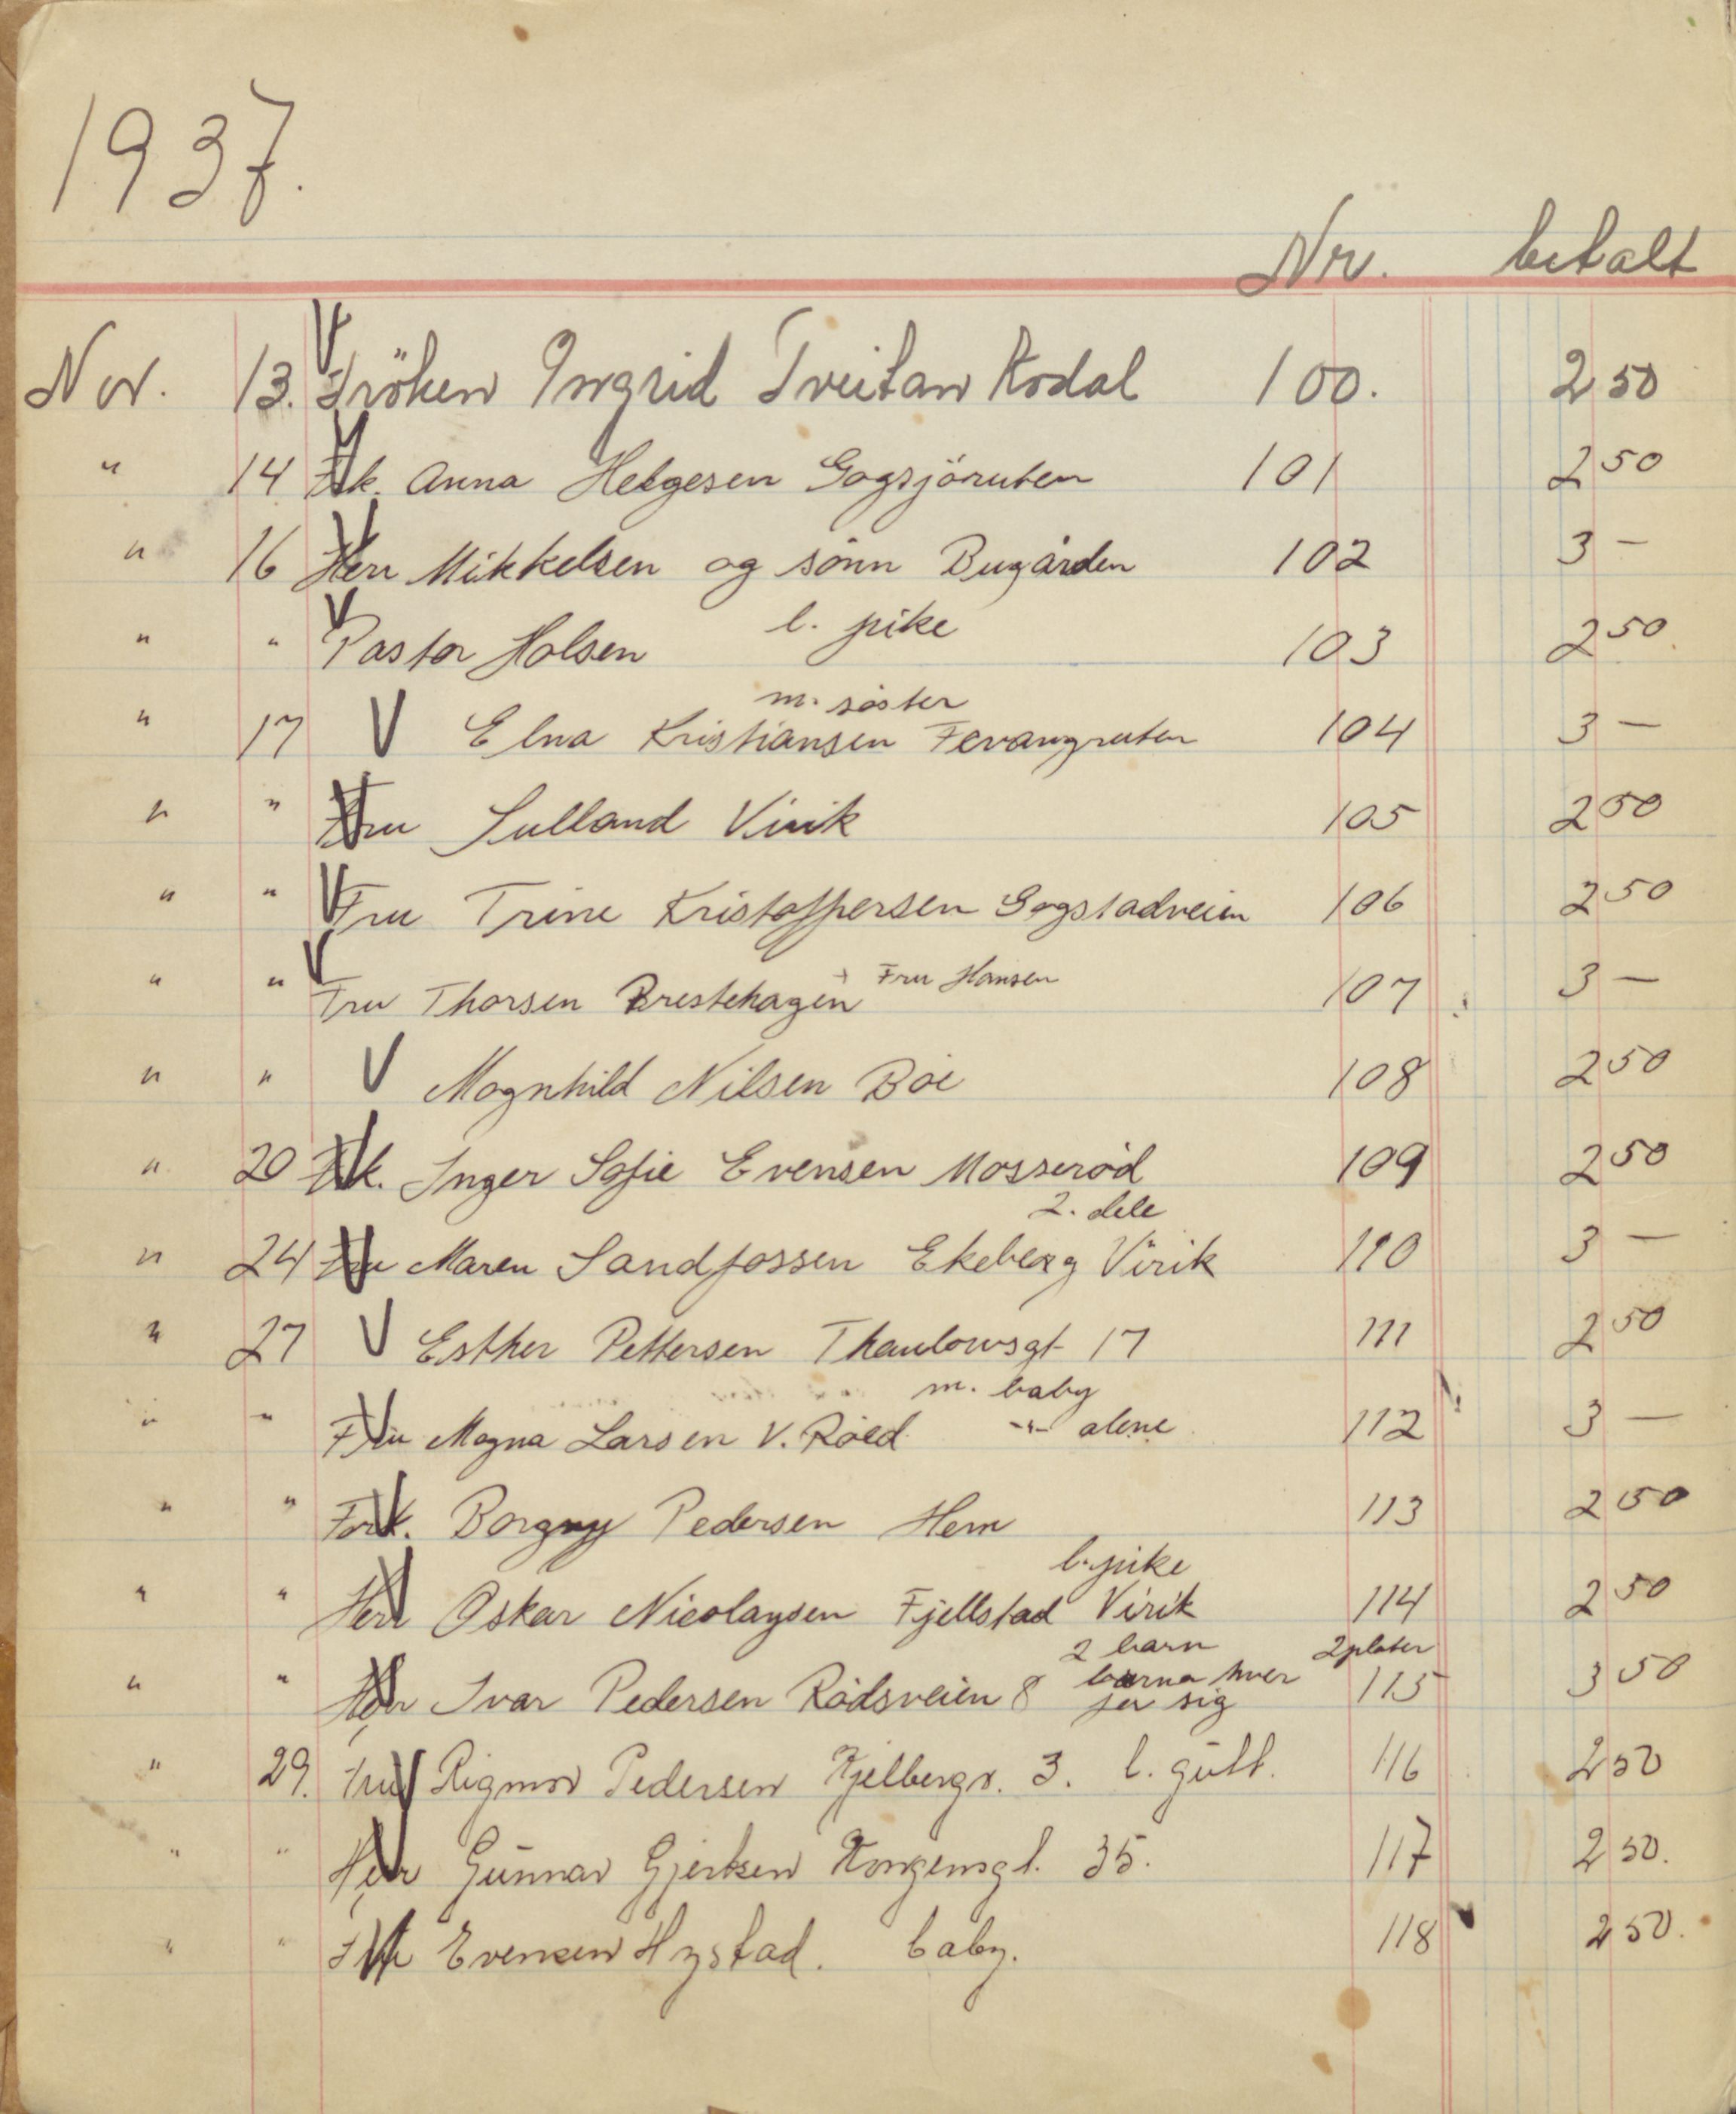 1937.
Nr. betalt
Nov. 13. Fröken Ingrid Tveitan Kodal 100. 2 50
" 14 Frk. Anna Helgesen Gogsjöruten 101 2 50
" 16 Herr Mikkelsen og sönn Bugården 102 3 —
" " Pastor Holsen l. pike 103 2 50.
m. söster
" 17 Elna Kristiansen Fevangruten 104 3 —
" " Fru Sulland Virik 105 2 50
" " Fru Trine Kristoffersen Gogstadveien 106 2 50
" " Fru Thorsen Prestehagen + Fru Hansen 107 3 —
" " Magnhild Nilsen Böe 108 2 50
" 20 Frk. Inger Sofie Evensen Mosseröd 109 2 50
2. dele
" 24 Fru Maren Sandfossen Ekeberg Virik 110 3 —
" 27 Esther Pettersen Thaulowsgt 17 111 2 50
m. baby
" " Fru Magna Larsen V. Röed -"- alene 112 3 —
" " Frk. Borgny Pedersen Hem 113 2 50
l. pike
" " Herr Oskar Nicolaysen Fjellstad Virik 114 2 50
2 barn 2 plater
" " Herr Ivar Pedersen Rödsveien 8 barna hver for sig 115 3 50
" 29. Fru Rigmor Pedersen Kjelbergv. 3. l. gutt. 116 2 50
" " Herr Gunnar Gjertsen Kongensgt. 35. 117 2 50.
" " Fru Evensen Hystad. baby. 118 2 50.